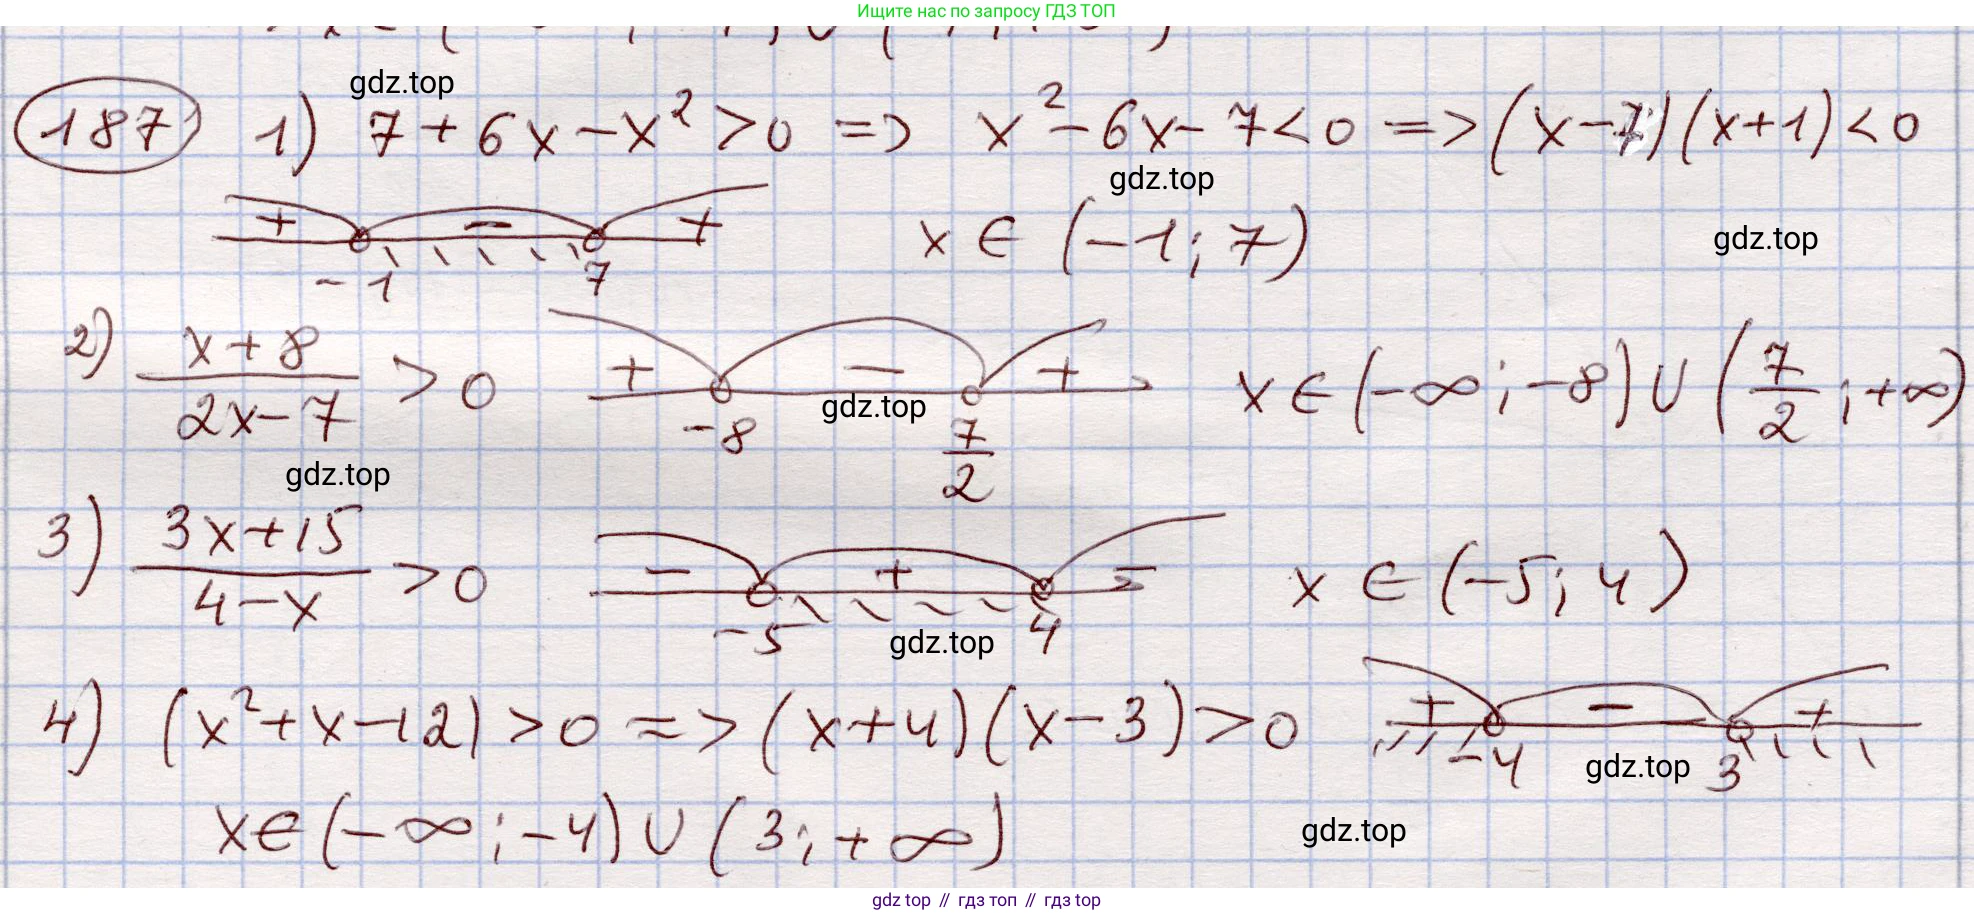 Ищите нас по запросу ГДЗ ТОП
gdz.top
187 1) 7 + 6x − x² > 0 => x² − 6x − 7 < 0 => (x − 7)(x + 1) < 0
gdz.top
+ − +
−1 7
x ∈ (−1; 7)
gdz.top
2) (x + 8)/(2x − 7) > 0
+ − +
−8 7/2
gdz.top
x ∈ (−∞; −8) ∪ (7/2; +∞)
gdz.top
3) (3x + 15)/(4 − x) > 0
− + −
−5 4
gdz.top
x ∈ (−5; 4)
4) (x² + x − 12) > 0 => (x + 4)(x − 3) > 0
+ − +
−4 3
gdz.top
x ∈ (−∞; −4) ∪ (3; +∞)
gdz.top
gdz top // гдз топ // gdz top